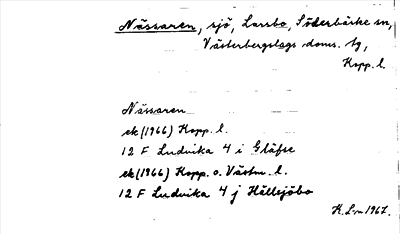 Nässaren, sjö, Larsbo, Söderbärke sn,
Västerbergslags doms. tg,
Kopp. l.
Nässaren
ek (1966) Kopp. l.
12 F Ludvika 4 i Gläfse
ek (1966) Kopp. o. Västm. l.
12 F Ludvika 4 j Hällsjöbo
K. L-m 1967.